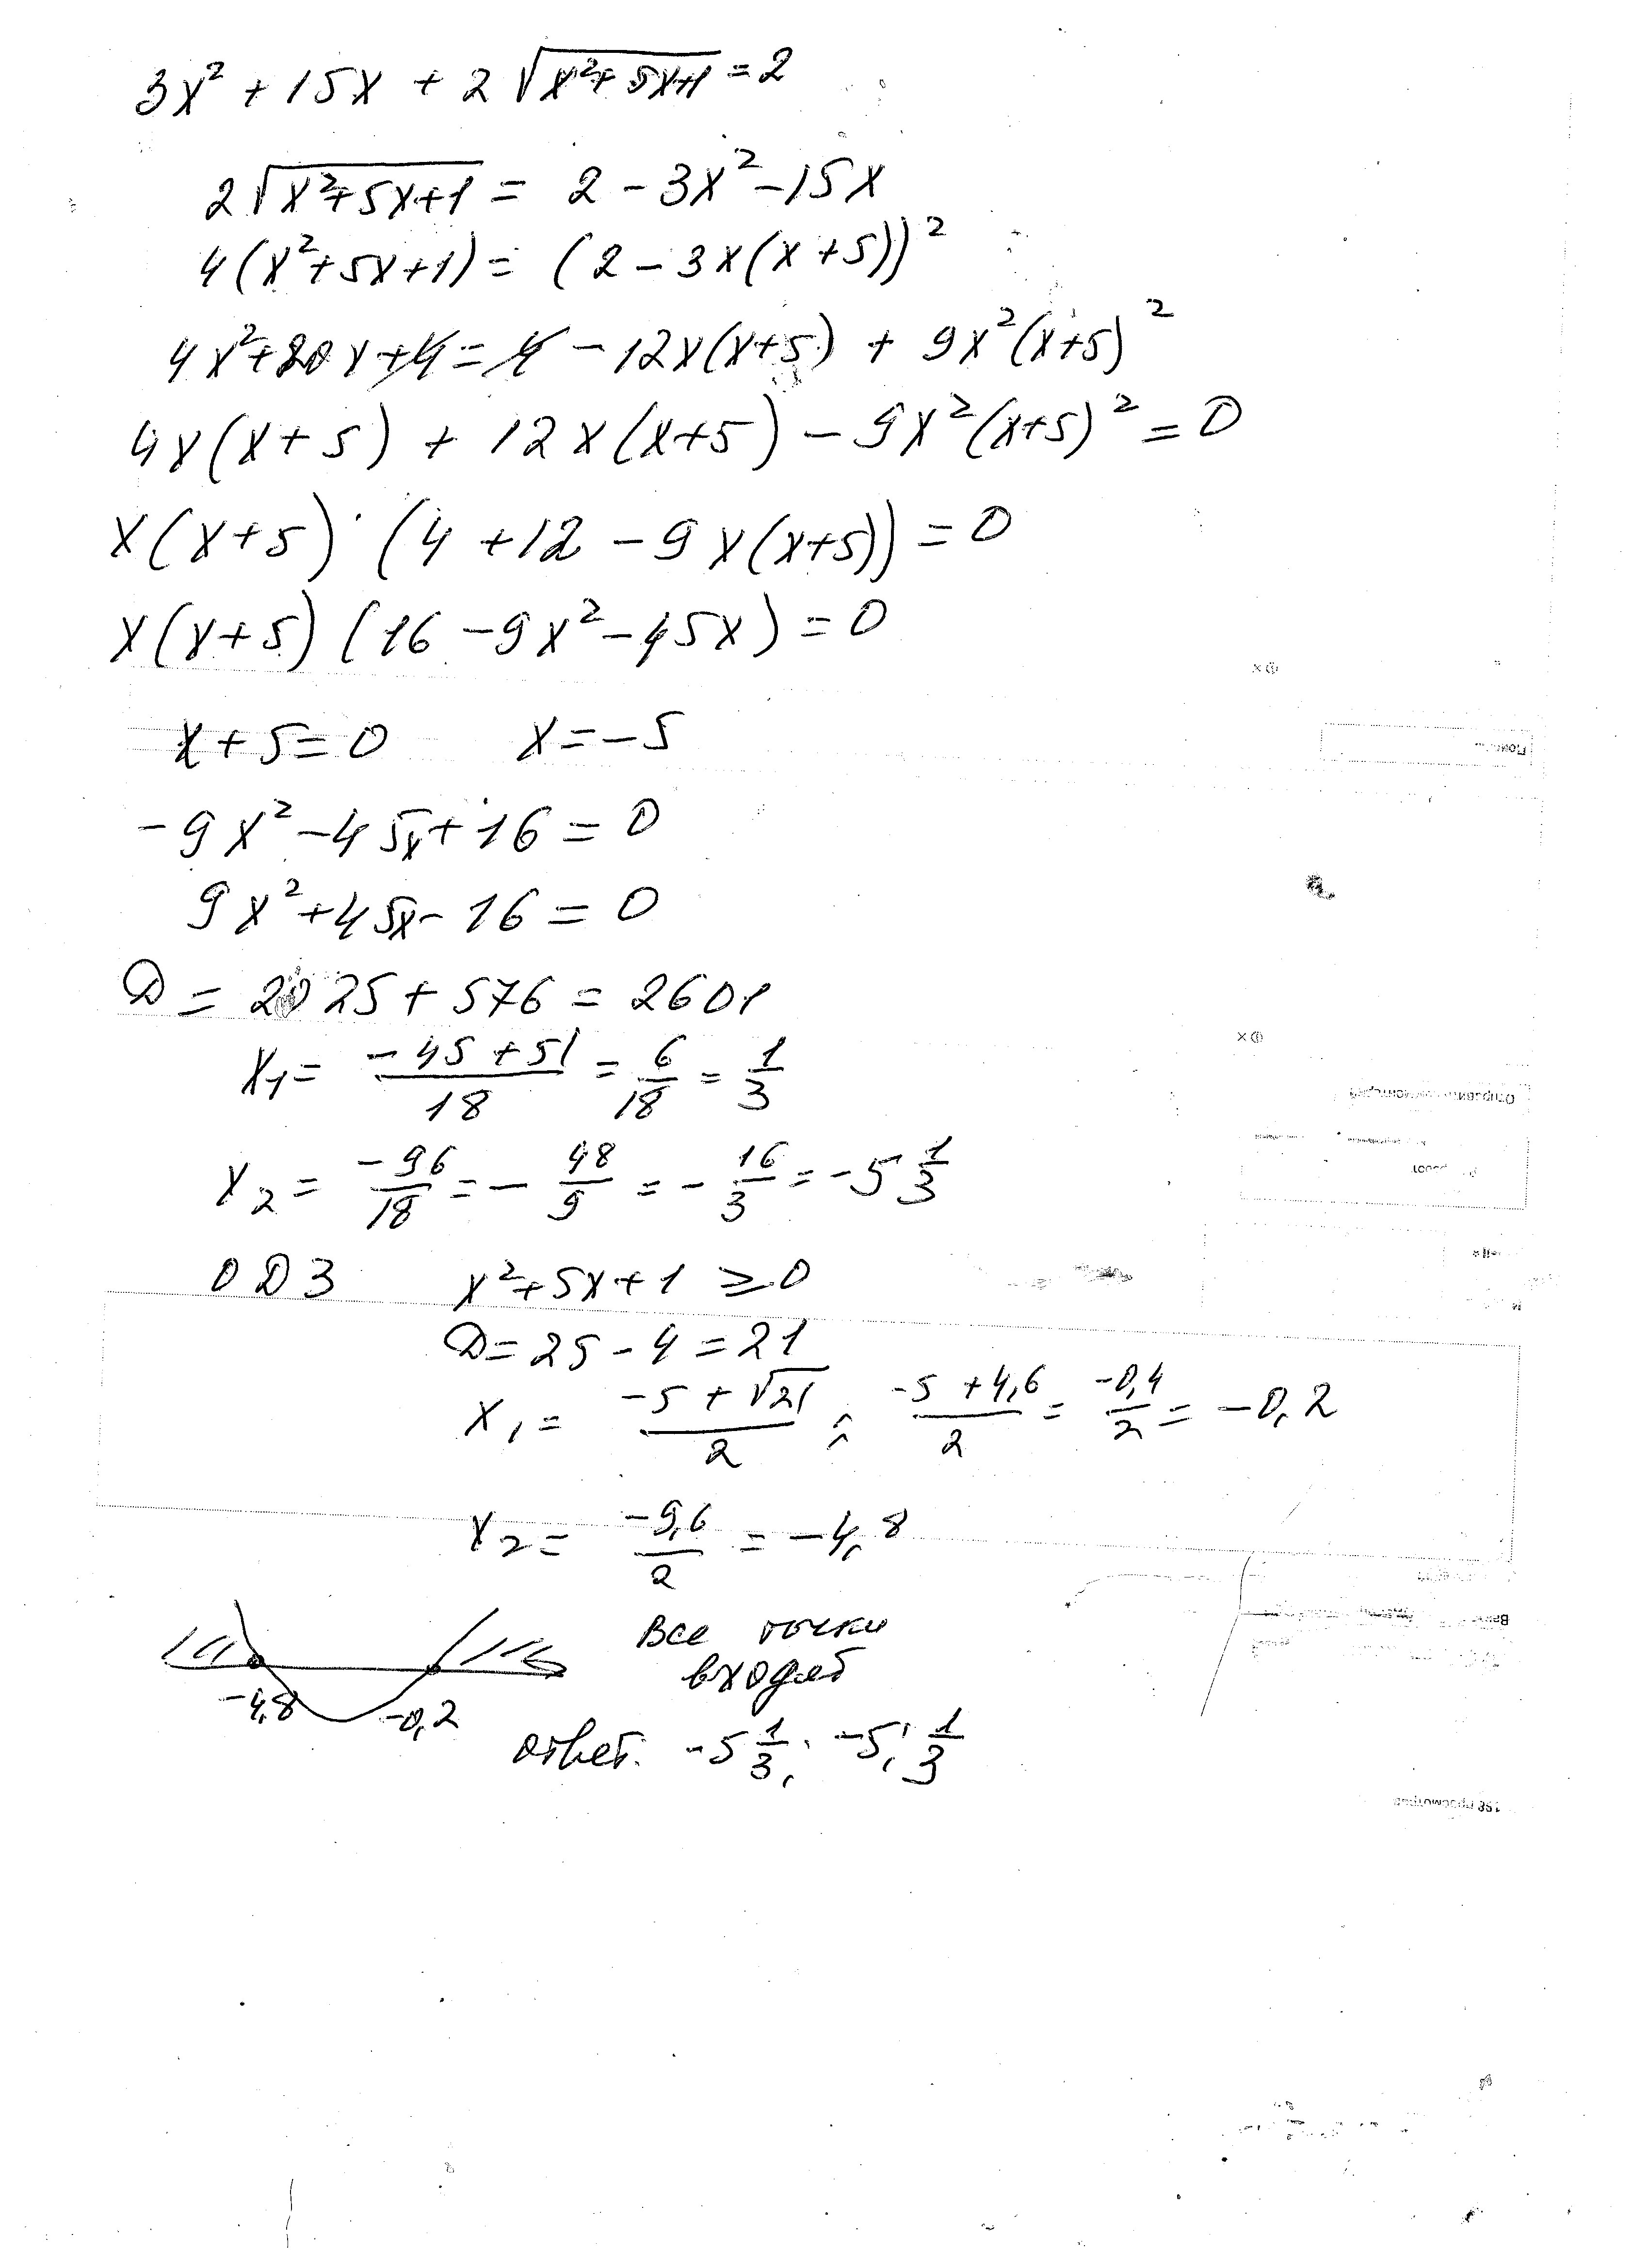 3x² + 15x + 2√(x²+5x+1) = 2
2√(x²+5x+1) = 2 - 3x² - 15x
4(x²+5x+1) = (2 - 3x(x+5))²
4x²+20x+4 = 4 - 12x(x+5) + 9x²(x+5)²
4x(x+5) + 12x(x+5) - 9x²(x+5)² = 0
x(x+5)·(4+12-9x(x+5)) = 0
x(x+5)(16-9x²-45x) = 0
x+5=0 x=-5
-9x²-45x+16=0
9x²+45x-16=0
D = 2025+576 = 2601
x₁ = (-45+51)/18 = 6/18 = 1/3
x₂ = -96/18 = -48/9 = -16/3 = -5 1/3
ОДЗ x²+5x+1 ≥ 0
D = 25-4 = 21
x₁ = (-5+√21)/2 ≈ (-5+4,6)/2 = -0,4/2 = -0,2
x₂ = -9,6/2 = -4,8
Все точки
входят
-4,8 -0,2
ответ. -5 1/3; -5; 1/3